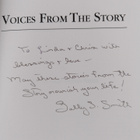 VOICES FROM THE STORY
To Linda & Chris with
blessings & love —
May these stories from the
Story nourish your life!
Sally D. Smith